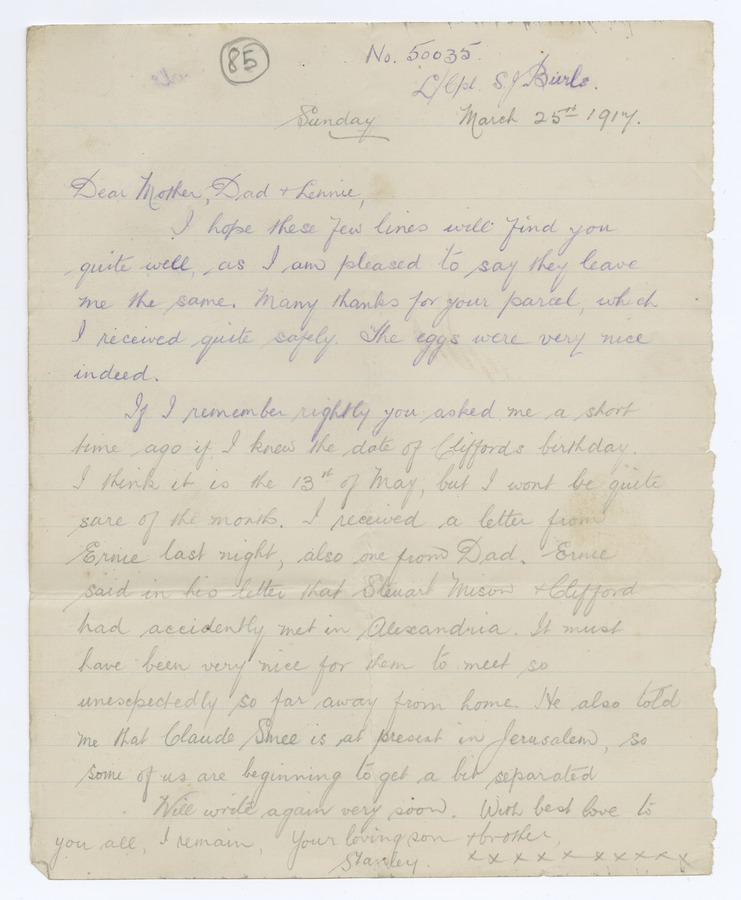 85
No. 50035.
L/Cpl. S. J. Burls.
Sunday March 25st 1917.
Dear Mother, Dad + Lennie,
I hope these few lines will find you
quite well, as I am pleased to say they leave
me the same. Many thanks for your parcel, which
I received quite safely. The eggs were very nice
indeed.
If I remember rightly you asked me a short
time ago if I knew the date of Cliffords birthday.
I think it is the 13st of May, but I wont be quite
sure of the month. I received a letter from
Ernie last night, also one from Dad. Ernie
said in his letter that Steuart + Clifford
had accidently met in Alexandria. It must
have been very nice for them to meet so
unexpectedly so far away from home. He also told
me that Claude Smee is at present in Jerusalem, so
some of us are beginning to get a bit separated
Will write again very soon. With best love to
you all, I remain, Your loving son + brother,
Stanley. x x x x x x x x x x